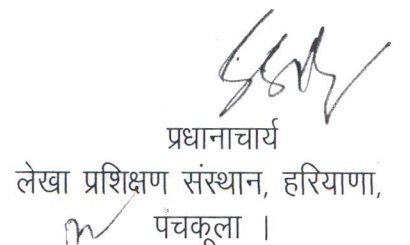 प्रधानाचार्य
लेखा प्रशिक्षण संस्थान, हरियाणा,
पंचकूला ।